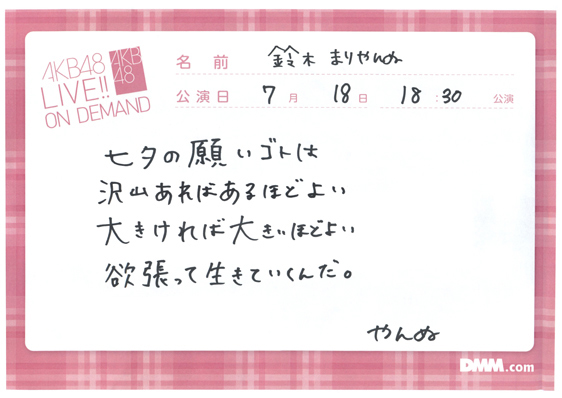 AKB48
LIVE!!
ON DEMAND
AKB
48
名前 鈴木 まりやんぬ
公演日 7月 18日 18:30 公演
七夕の願いゴトは
沢山あればあるほどよい
大きければ大きいほどよい
欲張って生きていくんだ。
やんぬ
DMM.com